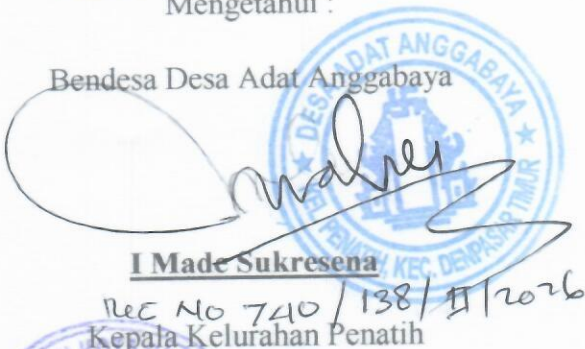 Mengetahui :
Bendesa Desa Adat Anggabaya
DESA ADAT ANGGABAYA
KEL. PENATIH, KEC. DENPASAR TIMUR
I Made Sukresena
REC NO 740 / 138 / II / 2026
Kepala Kelurahan Penatih